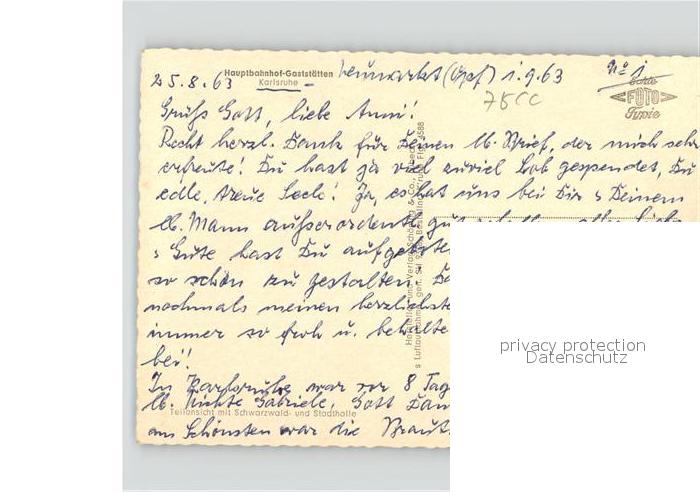 Hauptbahnhof-Gaststätten
Karlsruhe
25.8.63
Neumarkt (Opf) 1.9.63
No 1
75CC
Echte
FOTO
Typie
Grüß Gott, liebe Anni!
Recht herzl. Dank für Deinen lb. Brief, der mich sehr
erfreute! Du hast ja viel zuviel Lob gespendet, Du
edle, treue Seele! Ja, es hat uns bei Dir & Deinem
lb. Mann außerordentl. gut
& Güte hast Du aufgebote
so schön zu gestalten.
nochmals meinen herzlichste
immer so froh u. behalte
bei!
In Karlsruhe war vor 8 Tag
lb. Nichte Gabriele, Gott Dan
Teilansicht mit Schwarzwald- und Stadthalle
am Schönsten war die Braut
privacy protection
Datenschutz